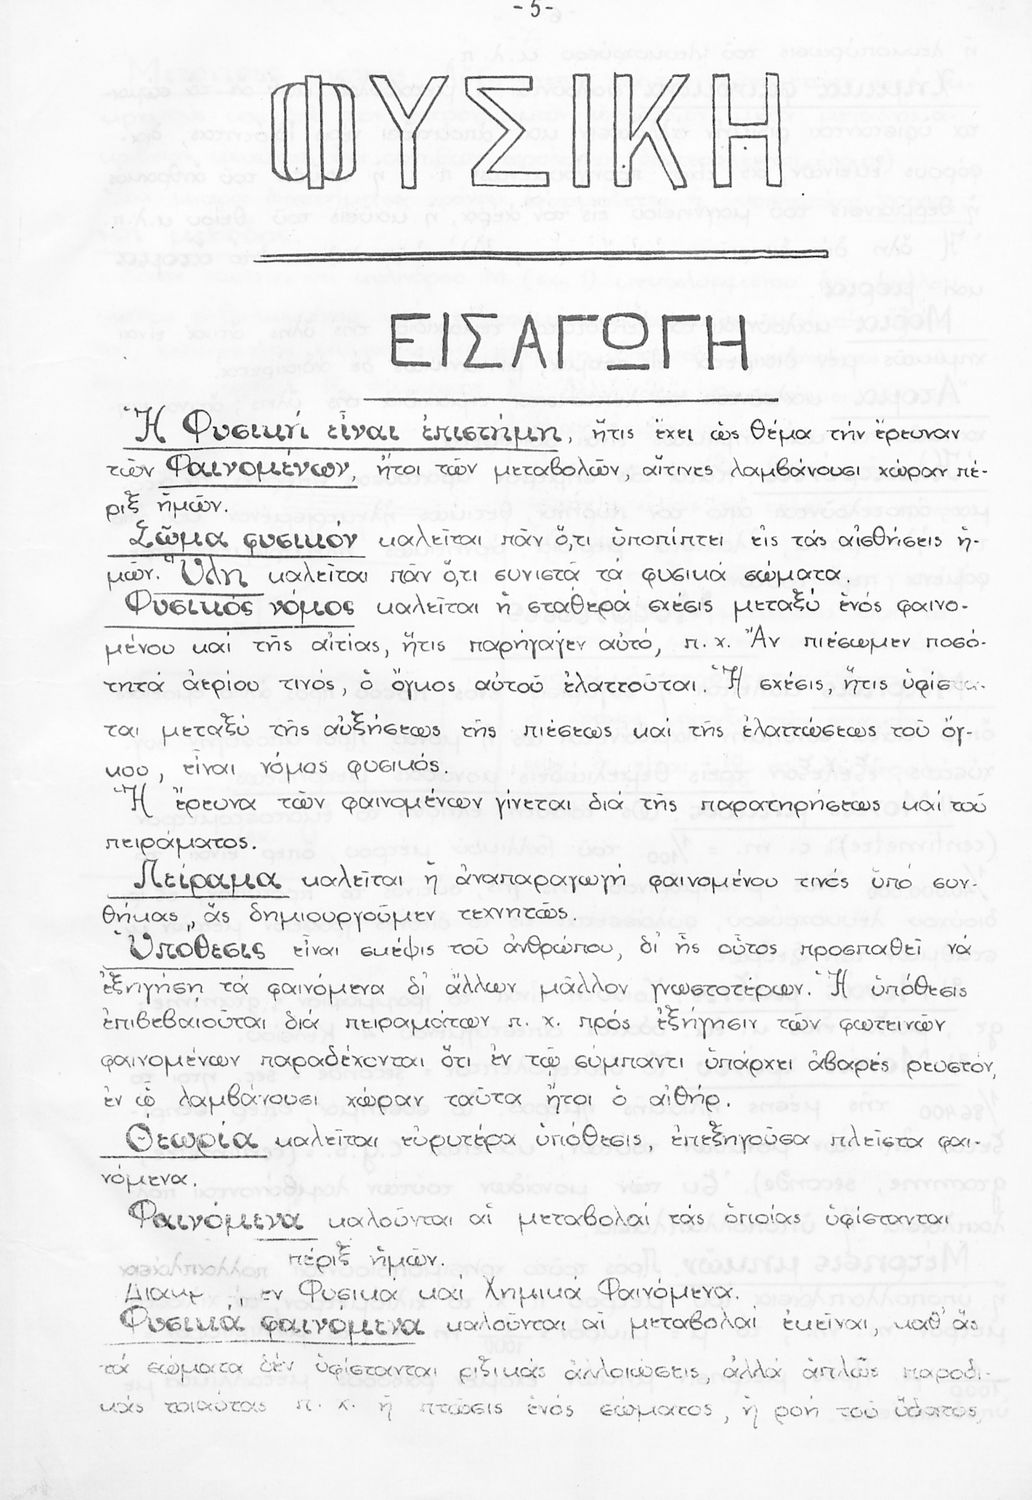 -5-
ΦΥΣΙΚΗ
ΕΙΣΑΓΩΓΗ
Ἡ Φυσική εἶναι ἐπιστήμη, ἥτις ἔχει ὡς θέμα τήν ἔρευναν
τῶν Φαινομένων, ἤτοι τῶν μεταβολῶν, αἵτινες λαμβάνουσι χώραν πέ-
ριξ ἡμῶν.
Σῶμα φυσικόν καλεῖται πᾶν ὅ,τι ὑποπίπτει εἰς τάς αἰσθήσεις ἡ-
μῶν. Ὕλη καλεῖται πᾶν ὅ,τι συνιστᾶ τά φυσικά σώματα.
Φυσικός νόμος καλεῖται ἡ σταθερά σχέσις μεταξύ ἑνός φαινο-
μένου καί τῆς αἰτίας, ἥτις παρήγαγεν αὐτό, π.χ. Ἄν πιέσωμεν ποσό-
τητά ἀερίου τινός, ὁ ὄγκος αὐτοῦ ἐλαττοῦται. Ἡ σχέσις, ἥτις ὑφίστα-
ται μεταξύ τῆς αὐξήσεως τῆς πιέσεως καί τῆς ἐλαττώσεως τοῦ ὄγ-
κου, εἶναι νόμος φυσικός.
Ἡ ἔρευνα τῶν φαινομένων γίνεται διά τῆς παρατηρήσεως καί τοῦ
πειράματος.
Πείραμα καλεῖται ἡ ἀναπαραγωγή φαινομένου τινός ὑπό συν-
θήκας, ἅς δημιουργοῦμεν τεχνητῶς.
Ὑπόθεσις εἶναι σκέψις τοῦ ἀνθρώπου, δι' ἧς οὗτος προσπαθεῖ νά
ἐξηγήση τά φαινόμενα δι' ἄλλων μᾶλλον γνωστοτέρων. Ἡ ὑπόθεσις
ἐπιβεβαιοῦται διά πειραμάτων π.χ. πρός ἐξήγησιν τῶν φωτεινῶν
φαινομένων παραδέχονται ὅτι ἐν τῷ σύμπαντι ὑπάρχει ἀβαρές ρευστόν,
ἐν ᾧ λαμβάνουσι χώραν ταῦτα ἤτοι ὁ αἰθήρ.
Θεωρία καλεῖται εὐρυτέρα ὑπόθεσις, ἐπεξηγοῦσα πλεῖστα φαι-
νόμενα.
Φαινόμενα καλοῦνται αἱ μεταβολαί τάς ὁποίας ὑφίστανται
πέριξ ἡμῶν.
Φυσικά καί Χημικά Φαινόμενα.
Φυσικά φαινόμενα καλοῦνται αἱ μεταβολαί ἐκεῖναι, καθ' ἅς
τά σώματα δέν ὑφίστανται ριζικάς ἀλλοιώσεις, ἀλλά ἁπλῶς παροδι-
κάς τοιαύτας π.χ. ἡ πτῶσις ἑνός σώματος, ἡ ροή τοῦ ὕδατος,